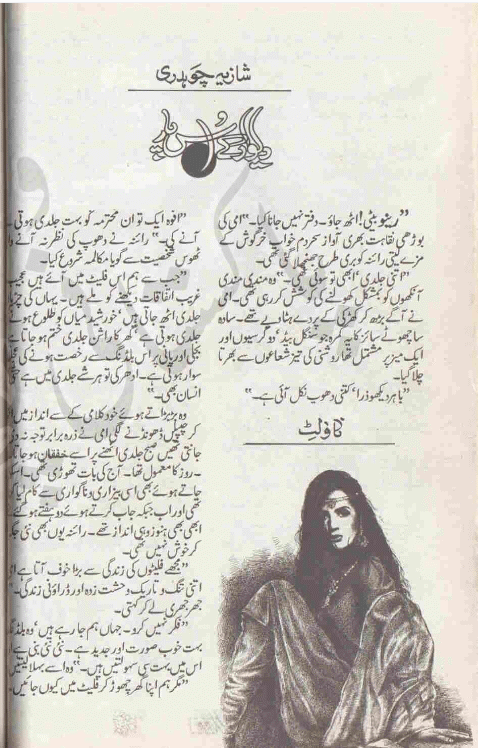 شازیہ چوہدری
دیوار کے اُس پار
”رینو بیٹی! اٹھ جاؤ۔ دفتر نہیں جانا کیا۔“ امی کی
بوڑھی نقاہت بھری آواز سحر دم خواب خرگوش کے
مزے لیتی رائنہ کو بری طرح جھنجلا گئی تھی۔
”اتنی جلدی‘ ابھی تو سوئی تھی۔“ وہ مندی مندی
آنکھوں کو بمشکل کھولنے کی کوشش کر رہی تھی۔ امی
نے آگے بڑھ کر کھڑکی کے پردے ہٹا دیے تھے۔ سادہ
سا چھوٹے سائز کا یہ کمرہ جو سنگل بیڈ‘ دو کرسیوں اور
ایک میز پر مشتمل تھا روشنی کی تیز شعاعوں سے بھرتا
چلا گیا۔
”باہر دیکھو ذرا‘ کتنی دھوپ نکل آئی ہے۔“
ناولٹ
”افوہ ایک تو ان محترمہ کو بہت جلدی ہوتی
آنے کی۔“ رائنہ نے دھوپ کی نظر نہ آنے وا
ٹھوس شخصیت سے گویا مکالمہ شروع کیا۔
”جب سے ہم اس فلیٹ میں آئے ہیں عجیب
غریب اتفاقات دیکھنے کو ملے ہیں۔ یہاں کی چڑیا
جلدی اٹھ جاتی ہیں‘ خورشید میاں کو طلوع ہونے
جلدی ہوتی ہے‘ شکر کا راشن جلدی ختم ہو جاتا ہے
بجلی اور پانی پر اس بلڈنگ سے رخصت ہونے کی
سوار ہوتی ہے۔ ادھر کی تو ہر شے جلدی میں ہے
انسان بھی۔“
وہ بڑبڑاتے ہوئے خود کلامی کے سے انداز میں
کر چپلیں ڈھونڈنے لگی امی نے ذرہ برابر توجہ نہ دی
جانتی تھیں صبح جلدی اٹھنے پر اسے خفقان ہو جاتا
۔ روز کا معمول تھا۔ آج کی بات تھوڑی تھی۔
جاتے ہوئے بھی اسی بیزاری و ناگواری سے کام لیا
تھی اور اب جبکہ جاب کرتے ہوئے دو ہفتے ہو گئے
ابھی بھی ہنوز وہی انداز تھے۔ رائنہ یوں بھی نئی جگہ
کر خوش نہیں تھی۔
”مجھے فلیٹوں کی زندگی سے بڑا خوف آتا ہے
اتنی تنگ و تاریک وحشت زدہ اور ڈراؤنی زندگی۔“
جھرجھری لے کر کہتی۔
”فکر نہیں کرو۔ جہاں ہم جا رہے ہیں‘ وہ بلڈنگ
بہت خوب صورت اور جدید ہے۔ نئی نئی بنی ہے
اس میں بہت سی سہولتیں ہیں۔“ وہ اسے بہلا لیتیں
”مگر ہم اپنا گھر چھوڑ کر فلیٹ میں کیوں جائیں